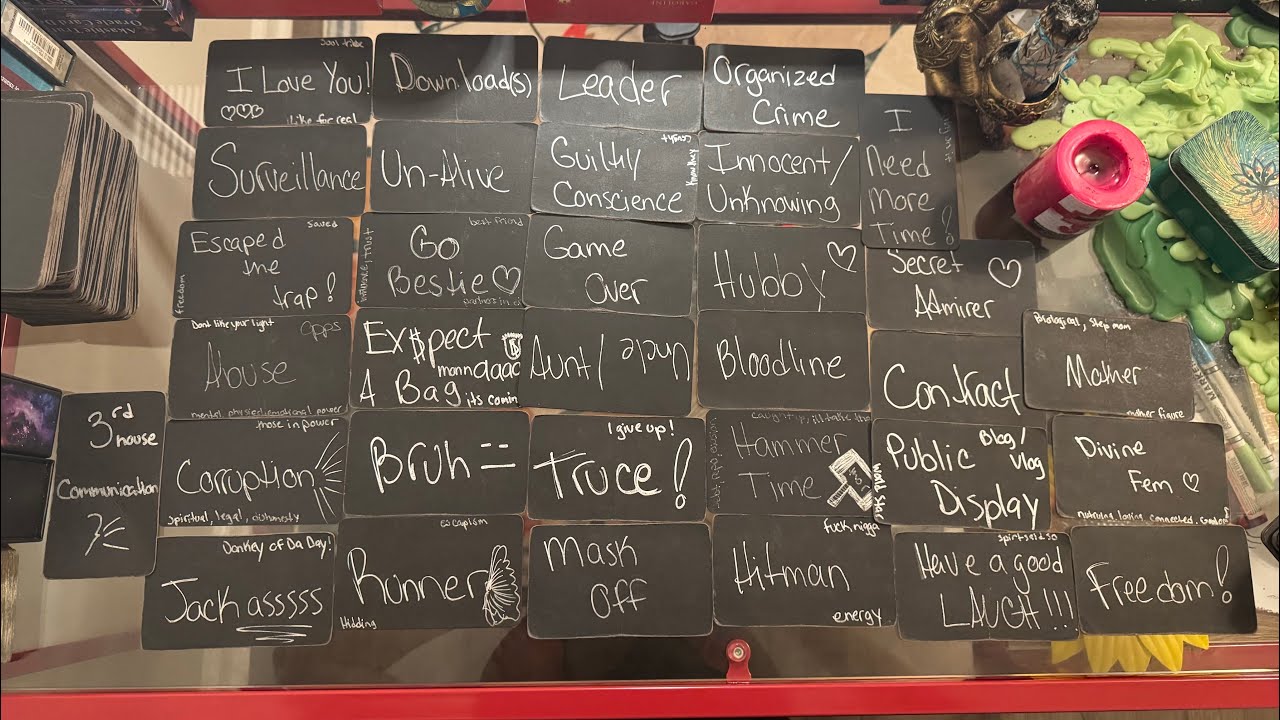 Oracle Card
Soul tribe
I Love You!
Like for real
Download(s)
Leader
Organized
Crime
I
Need
More
Time!
Surveillance
Un-Alive
Guiltly
Conscience
Innocent/
Unknowing
Saved
Escaped
the
trap!
freedom
best friend
Go
Bestie
Game
Over
Hubby
Secret
Admirer
Dont like your light
opps
Abuse
mental, physical, emotional, power
Ex$pect
mannaaaa
A Bag
its comin
Aunt/Uncle
Bloodline
Contract
Biological, step mom
Mother
mother figure
3rd
house
Communication
those in power
Corruption
spiritual, legal, dishonesty
Bruh
I give up!
Truce!
Hammer
Time
Public
Blog/
Vlog
Display
world stage
Divine
Fem
Donkey of Da Day!
Jackasssss
escapism
Runner
Hidding
Mask
Off
fuck nigga
Hitman
energy
Have a good
LAUGH!!!
Freedom!